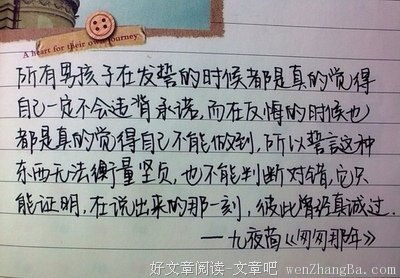 A heart for their own journey
所有男孩子在发誓的时候都是真的觉得
自己一定不会违背承诺,而在反悔的时候也
都是真的觉得自己不能做到,所以誓言这种
东西无法衡量坚贞,也不能判断对错,它只
能证明,在说出来的那一刻,彼此曾经真诚过.
——九夜茴《匆匆那年》
好文章阅读-文章吧 wenZhangBa.com